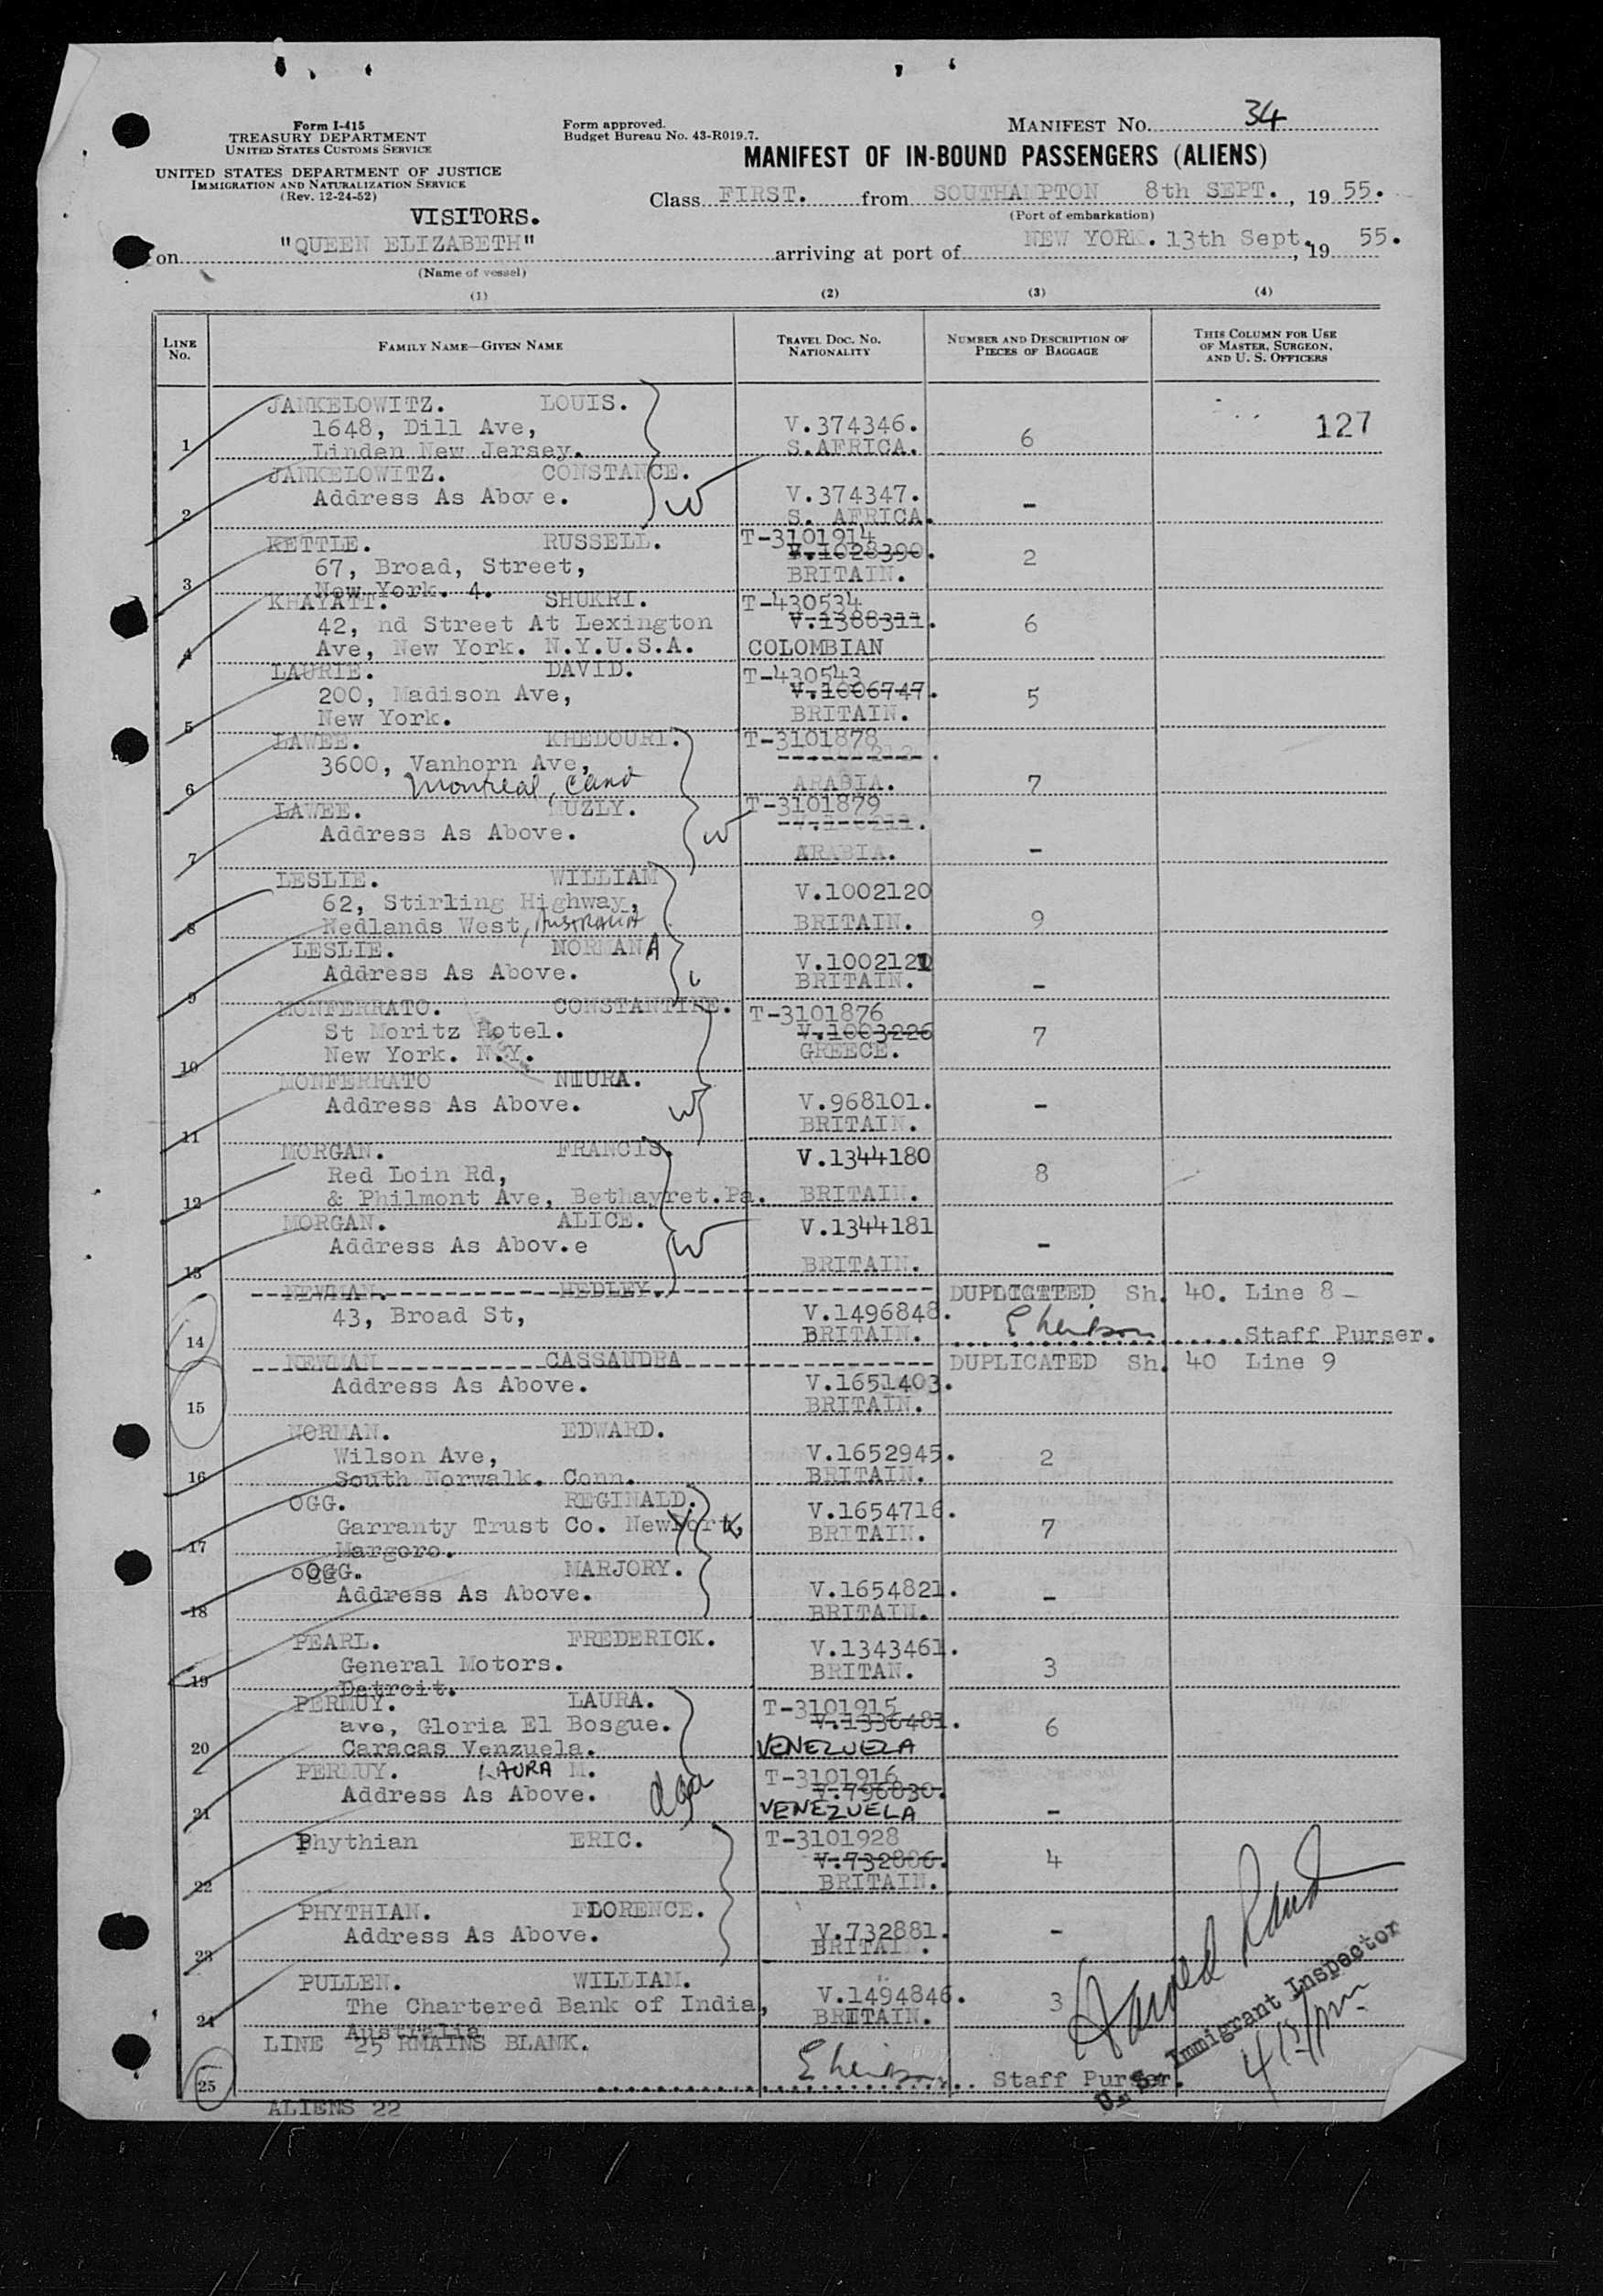 Form I-415
TREASURY DEPARTMENT
UNITED STATES CUSTOMS SERVICE
UNITED STATES DEPARTMENT OF JUSTICE
IMMIGRATION AND NATURALIZATION SERVICE
(Rev. 12-24-52)
Form approved.
Budget Bureau No. 43-R019.7.
MANIFEST No. 34
MANIFEST OF IN-BOUND PASSENGERS (ALIENS)
Class FIRST. from SOUTHAMPTON 8th SEPT., 19 55.
(Port of embarkation)
VISITORS.
on "QUEEN ELIZABETH" arriving at port of NEW YORK. 13th Sept., 19 55.
(Name of vessel)
(1) (2) (3) (4)
LINE No. FAMILY NAME—GIVEN NAME TRAVEL DOC. NO. NATIONALITY NUMBER AND DESCRIPTION OF PIECES OF BAGGAGE THIS COLUMN FOR USE OF MASTER, SURGEON, AND U. S. OFFICERS
JANKELOWITZ. LOUIS.
1648, Dill Ave, V.374346. 127
1 Linden New Jersey. S.AFRICA. 6
JANKELOWITZ. CONSTANCE.
Address As Above. V.374347.
2 S. AFRICA. -
KETTLE. RUSSELL. T-3101914
67, Broad, Street, V.1028390. 2
3 New York. 4. BRITAIN.
KHAYATT. SHUKRI. T-430534
42, nd Street At Lexington V.1388311. 6
4 Ave, New York. N.Y.U.S.A. COLOMBIAN
LAURIE. DAVID. T-430543
200, Madison Ave, V.1006747. 5
5 New York. BRITAIN.
LAWEE. KHEDOURI. T-3101878
3600, Vanhorn Ave,
6 Montreal, Cand ARABIA. 7
LAWEE. MUZLY. T-3101879
Address As Above.
7 ARABIA. -
LESLIE. WILLIAM V.1002120
62, Stirling Highway,
8 Nedlands West, Australia BRITAIN. 9
LESLIE. NORMANA V.1002121
9 Address As Above. BRITAIN. -
MONFERRATO. CONSTANTINE. T-3101876
St Moritz Hotel. V.1003226 7
10 New York. N.Y. GREECE.
MONFERRATO NIURA.
Address As Above. V.968101. -
11 BRITAIN.
MORGAN. FRANCIS. V.1344180
Red Loin Rd, 8
12 & Philmont Ave, Bethayret.Pa. BRITAIN.
MORGAN. ALICE. V.1344181
Address As Abov.e -
13 BRITAIN.
NEWMAN. HEDLEY. DUPLICATED Sh. 40. Line 8 -
43, Broad St, V.1496848.
14 BRITAIN. Staff Purser.
NEWMAN CASSANDRA DUPLICATED Sh. 40 Line 9
Address As Above. V.1651403.
15 BRITAIN.
NORMAN. EDWARD.
Wilson Ave, V.1652945. 2
16 South Norwalk. Conn. BRITAIN.
OGG. REGINALD. V.1654716.
Garranty Trust Co. NewYork, BRITAIN. 7
17 Margoro.
OGG. MARJORY.
Address As Above. V.1654821. -
18 BRITAIN.
PEARL. FREDERICK. V.1343461.
General Motors. BRITAN. 3
19 Detroit.
PERMUY. LAURA. T-3101915
ave, Gloria El Bosgue. V.1336481. 6
20 Caracas Venzuela. VENEZUELA
PERMUY. LAURA M. T-3101916
Address As Above. V.796830.
21 VENEZUELA -
Phythian ERIC. T-3101928
V.732886. 4
22 BRITAIN.
PHYTHIAN. FLORENCE.
Address As Above. V.732881. -
23 BRITAIN.
PULLEN. WILLIAM.
The Chartered Bank of India, V.1494846. 3
24 Australia BRITAIN.
LINE 25 RMAINS BLANK.
25 Staff Purser.
U. S. Immigrant Inspector
ALIENS 22